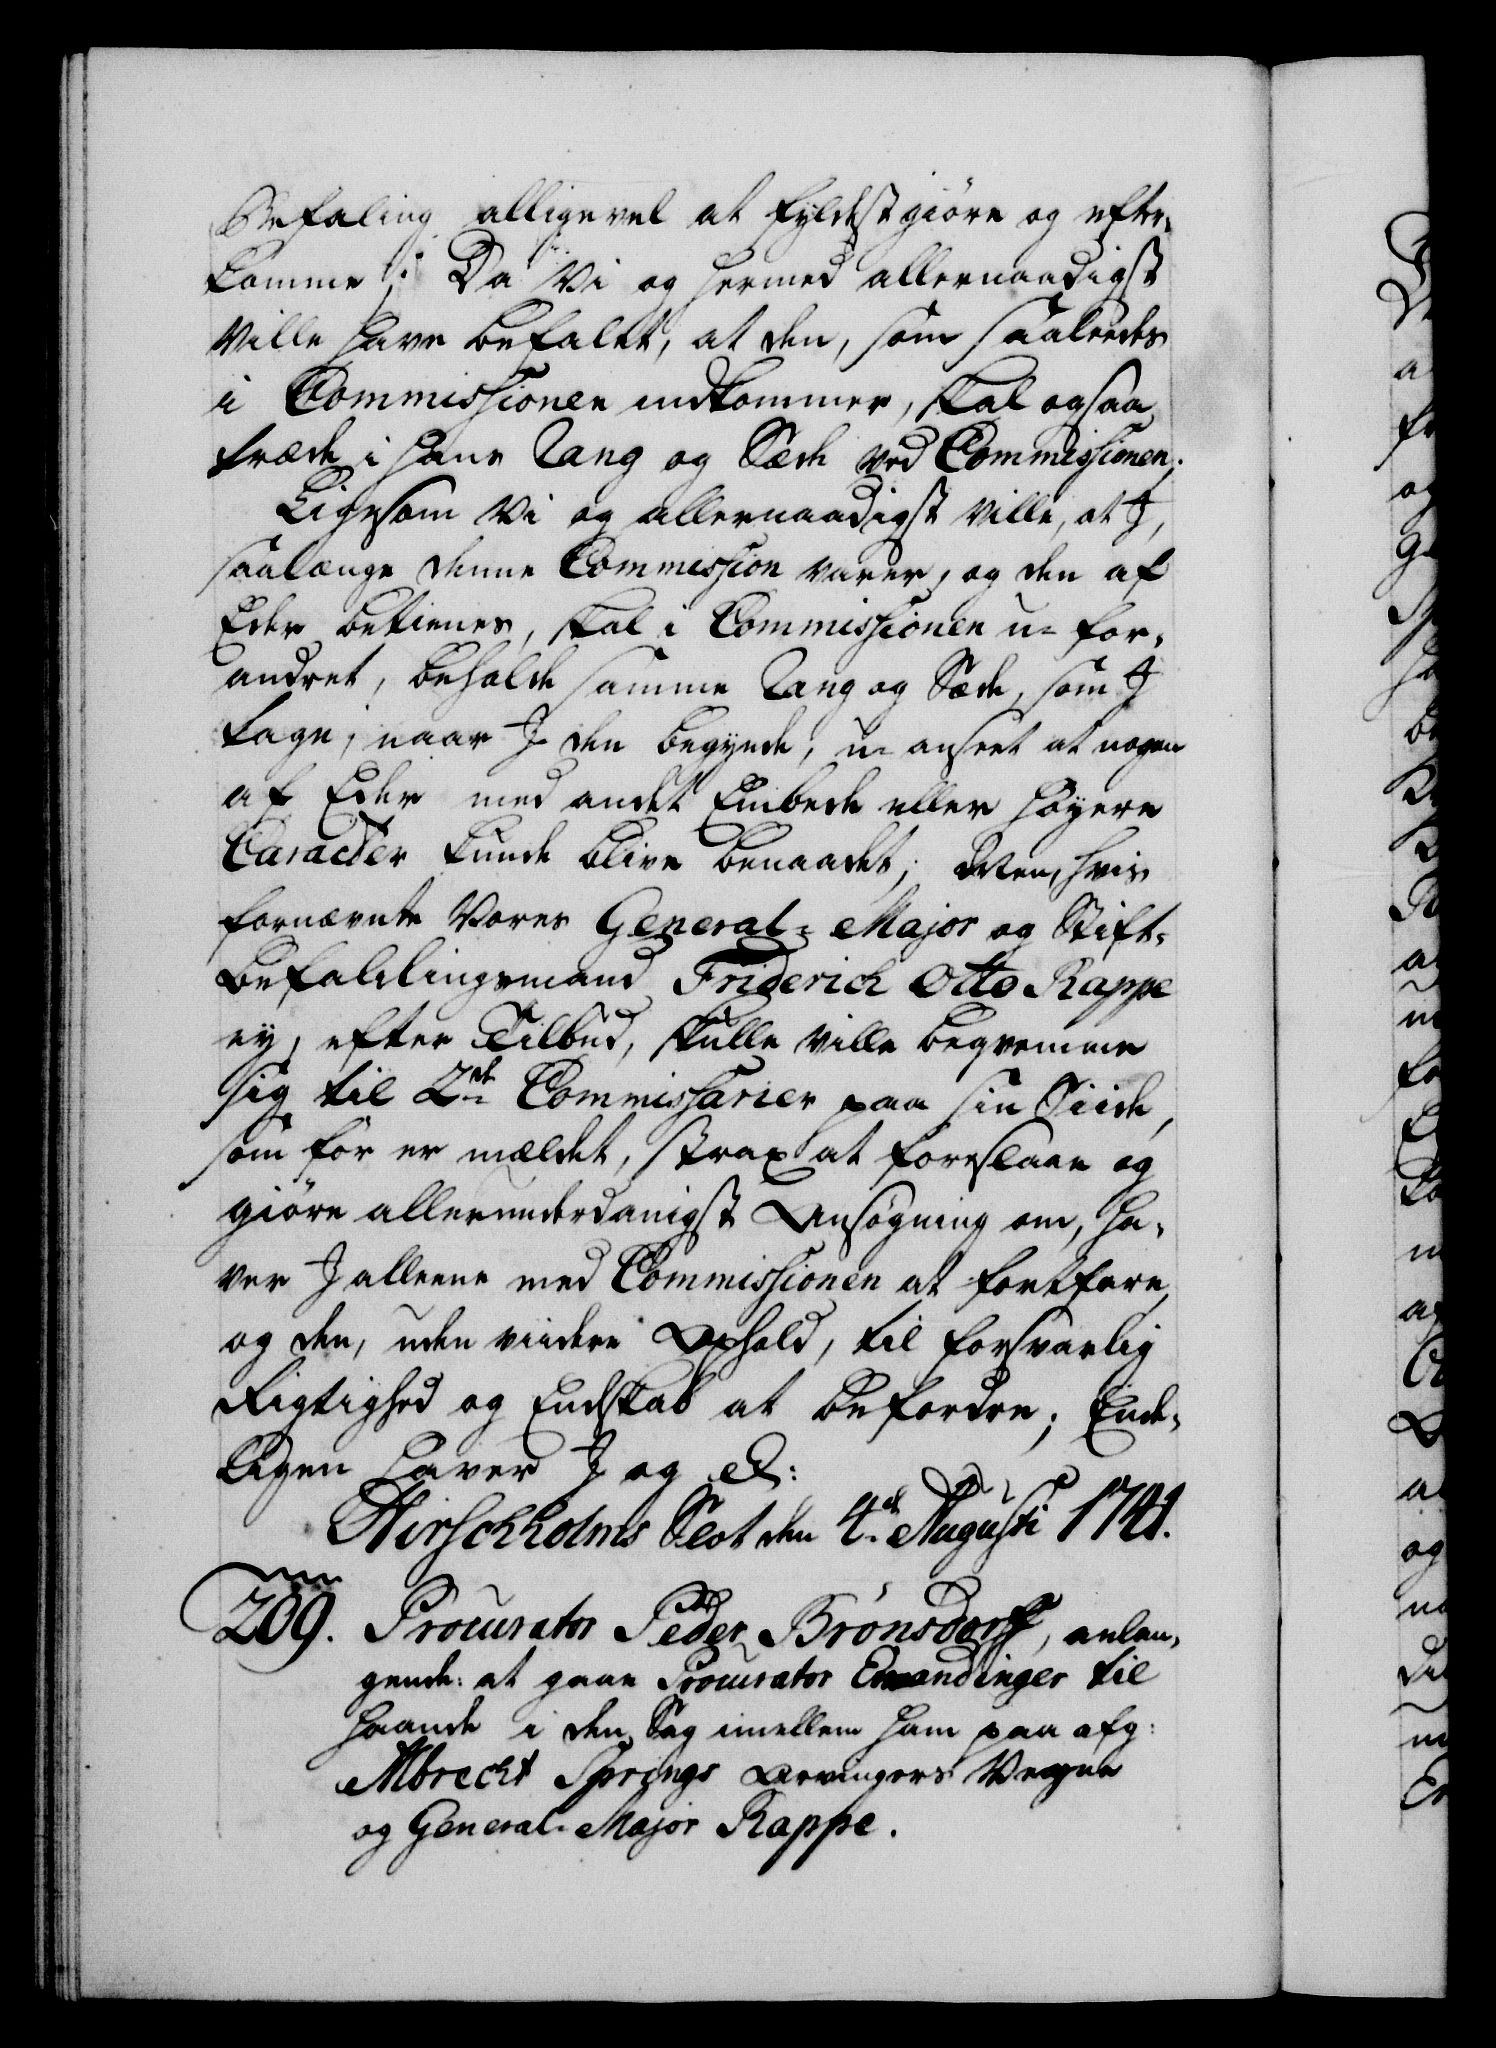 Befaling alligevel at fyldestgiöre og efter-
komme; Da Vi og hermed allernaadigst
ville have befalet, at den, som saaleedes
i Commissionen indkommer, skal ogsaa
træde i hans Rang og Sæde ved Commissionen.
Ligesom Vi og allernaadigst ville, at J,
saalænge denne Commission varer, og den af
Eder betienes, skal i Commissionen u- for-
andret, beholde samme Rang og Sæde, som J
tage, naar J den begynde, u- anseet at nogen
af Eder med andet Embede eller höyere
Caracter kunde blive benaadet; Men, hvis
fornævnte Vores General-Major og Stift-
befahlingsmand Friderich Otto Rappe
ey, efter Tilbud, skulle ville beqvemme
sig til 2de Commissarier paa sin Siide,
som för er mældet, strax at foreslaae og
giöre allerunderdanigst Ansögning om, ha-
ver J alleene med Commissionen at fortfare,
og den, uden viidere Ophold, til forsvarlig
Rigtighed og Endskab at befordre; Ende-
ligen haver J og &:
Hirschholms Slot den 4de Augusti 1741.
209. Procurator Peder Brönsdorff, anlan-
gende: at gaae Procurator Emandinger til
Haande i den Sag imellem ham paa afg:
Albrecht Springs Arvingers Vegne
og General-Major Rappe.